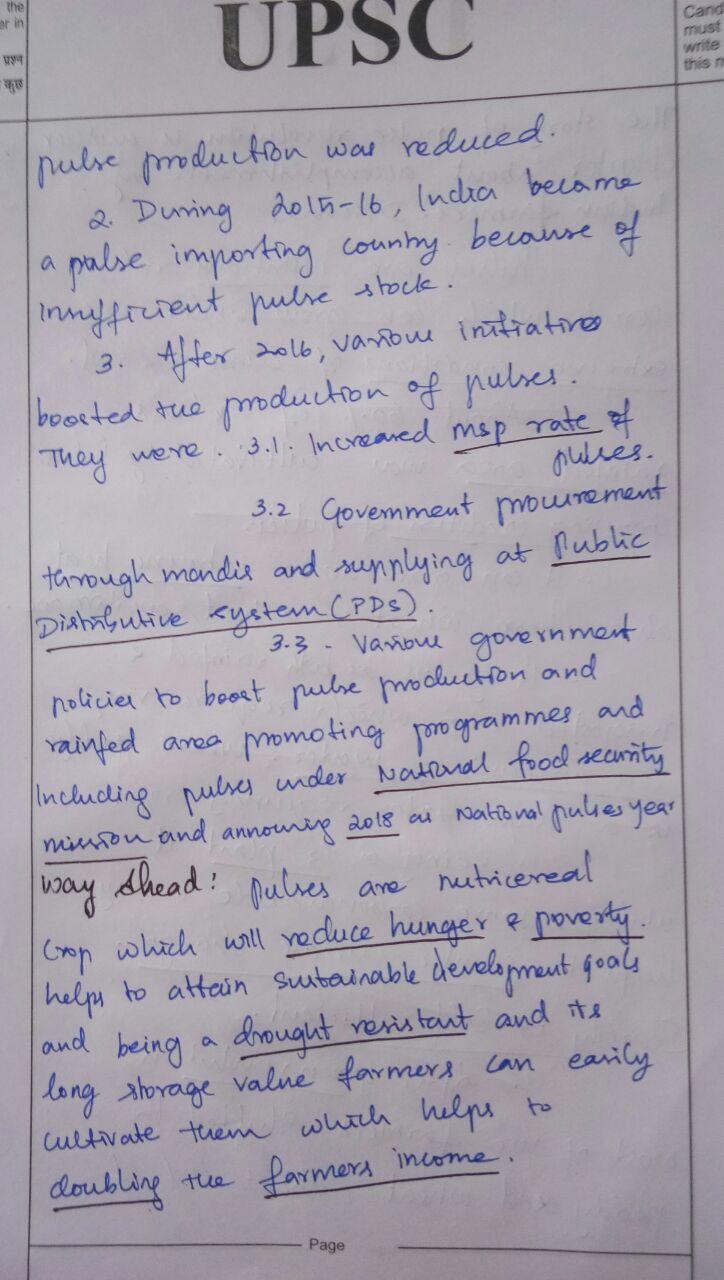 the
er in
प्रश्न
कुछ
UPSC
Cand
must
write
this m
pulse production was reduced.
2. During 2015-16, India became
a pulse importing country because of
insufficient pulse stock.
3. After 2016, various initiatives
boosted the production of pulses.
They were. 3.1. Increased msp rate of
pulses.
3.2 Government procurement
through mandis and supplying at Public
Distributive system (PDS).
3.3 - Various government
policies to boost pulse production and
rainfed area promoting programmes and
Including pulses under National food security
mission and announing 2018 as National pulses year
Way Ahead: Pulses are nutricereal
Crop which will reduce hunger & poverty.
helps to attain sustainable development goals
and being a drought resistant and its
long storage value farmers can easily
cultivate them which helps to
doubling the farmers income.
Page